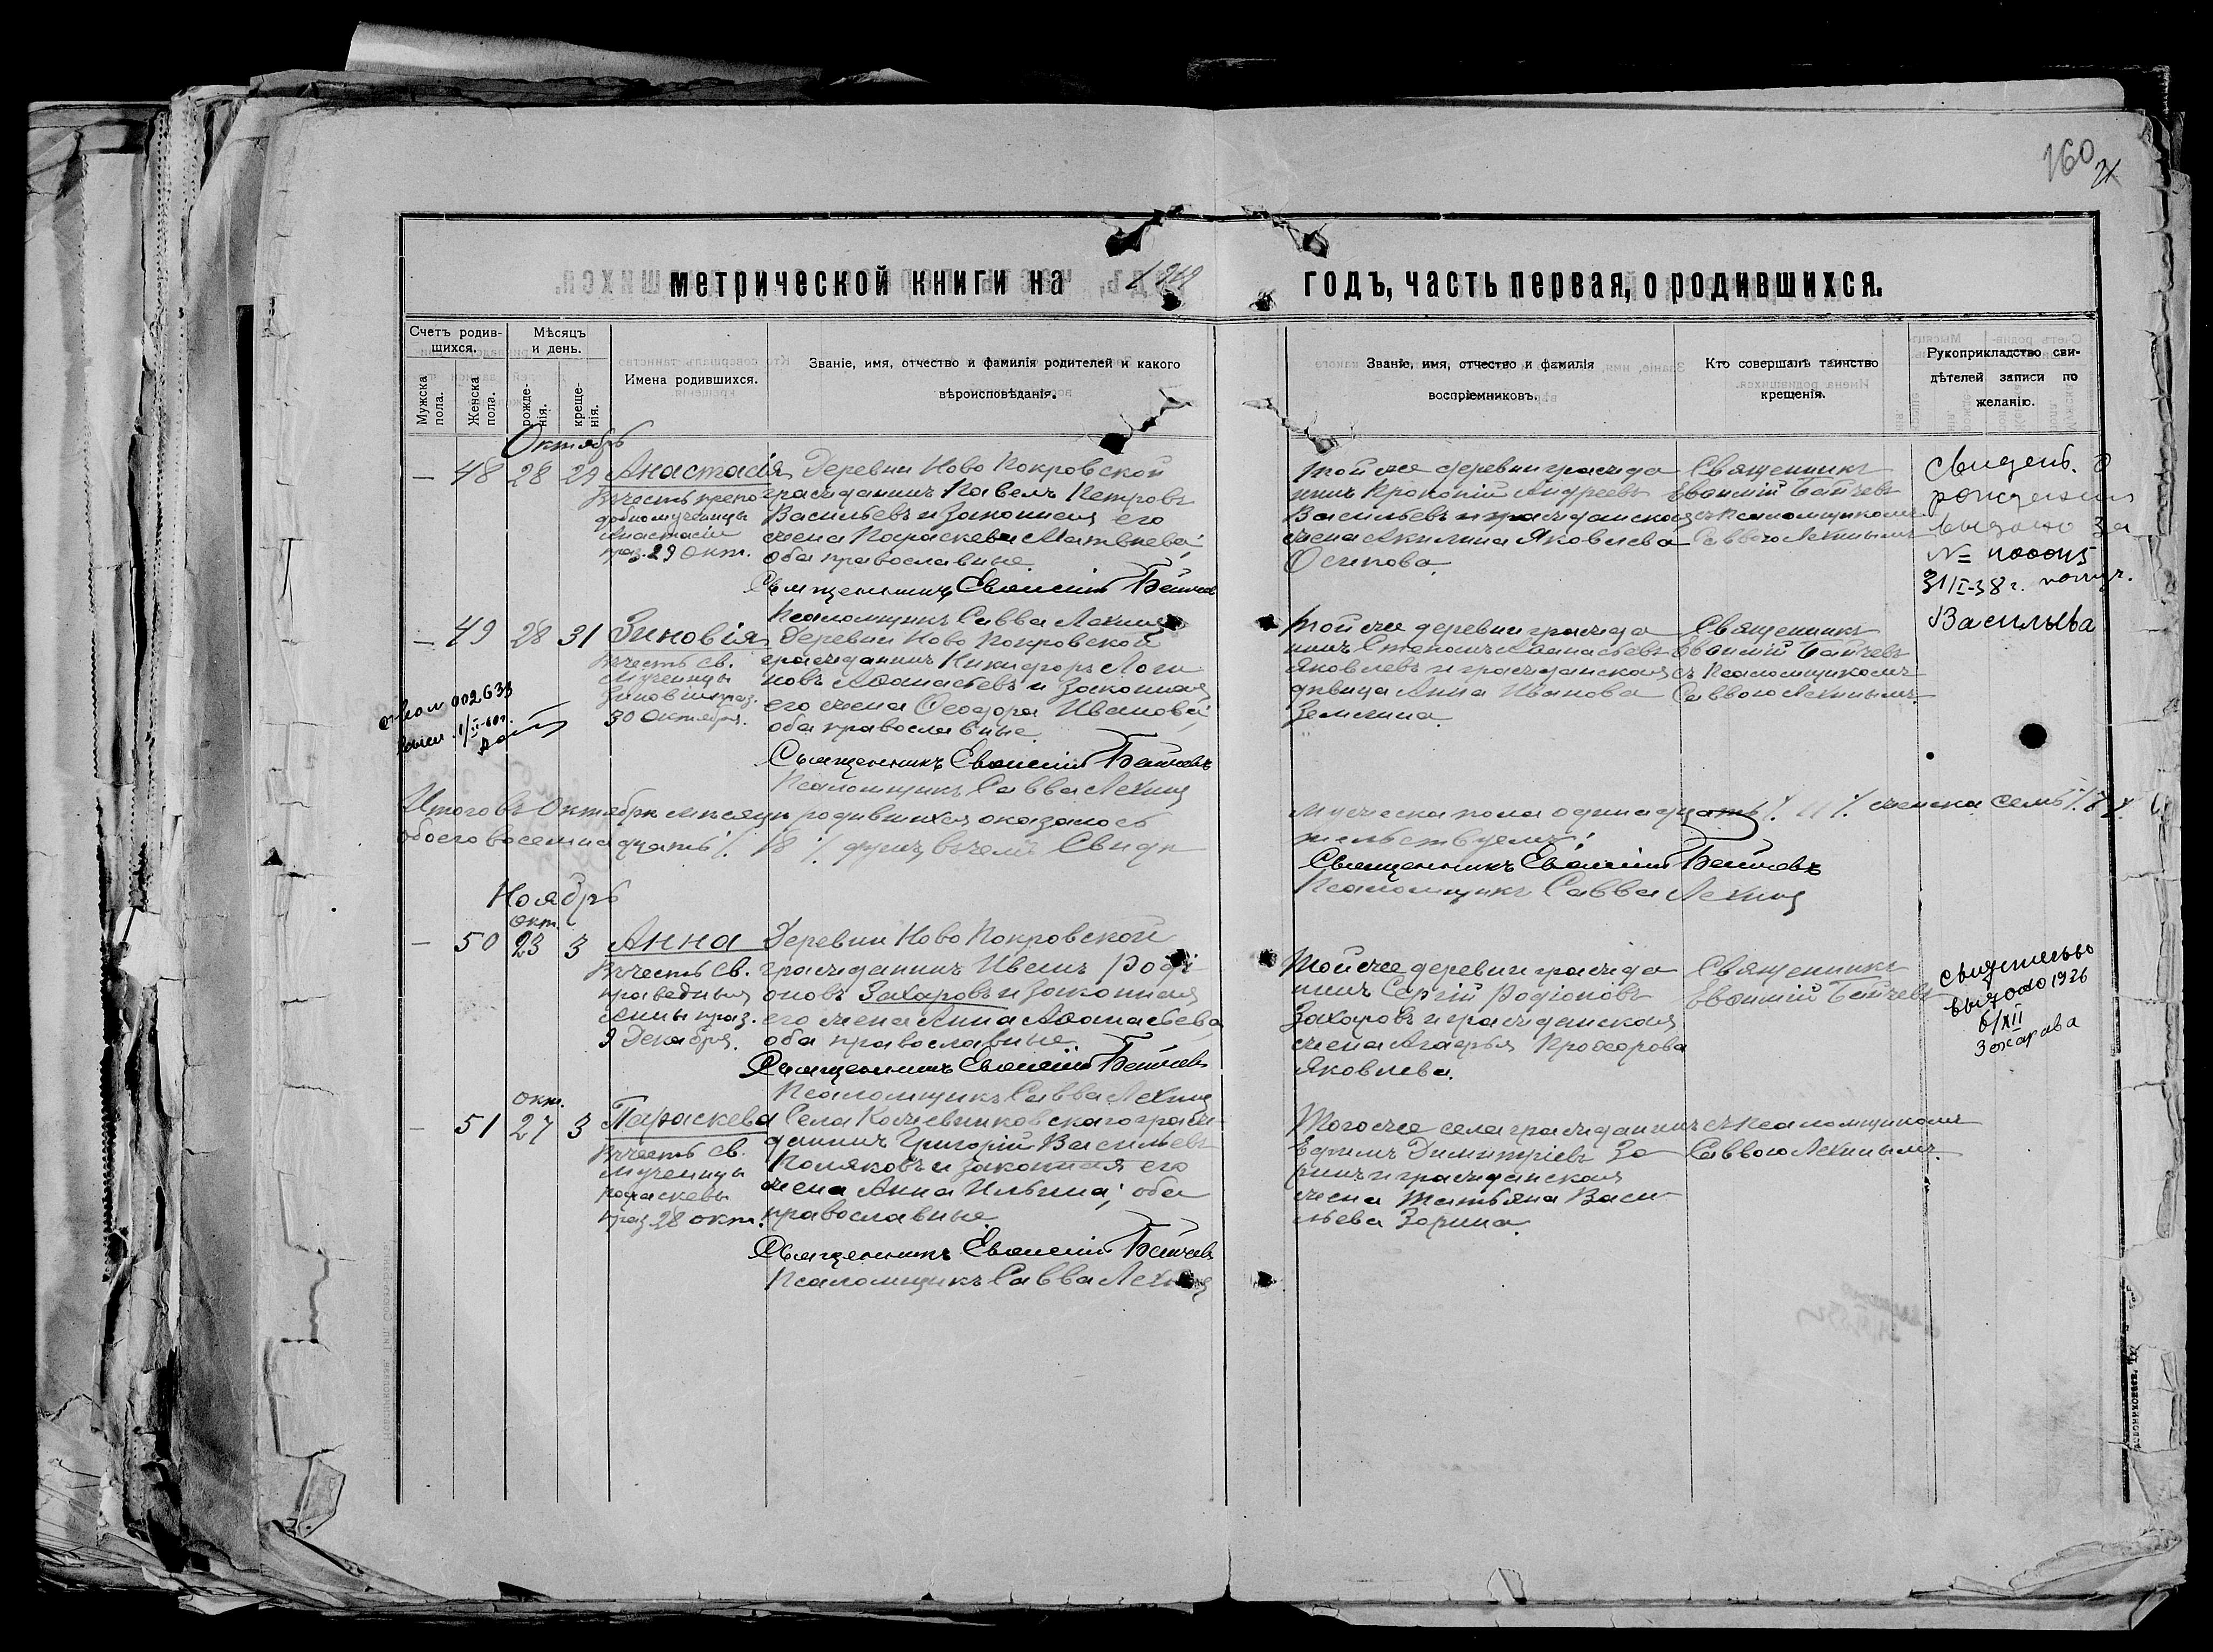 160
21
метрической книги на 1919
годъ, часть первая, о родившихся.
Счетъ родив-
шихся.
Мужска
пола.
Женска
пола.
Мѣсяцъ
и день.
рожде-
нія.
креще-
нія.
Имена родившихся.
Званіе, имя, отчество и фамилія родителей и какого
вѣроисповѣданія.
Званіе, имя, отчество и фамилія
воспріемниковъ.
Кто совершалъ таинство
крещенія.
Рукоприкладство сви-
дѣтелей записи по
желанію.
Октябрь
— 48 28 29
Анастасія
въ честь препо
добномученицы
Анастасіи
праз. 29 окт.
Деревни Ново Покровской
гражданинъ Павелъ Петровъ
Васильевъ и законная его
жена Параскева Матвѣева,
оба православные.
Священникъ Евѳимій Байчевъ
Псаломщикъ Савва Лехинъ
Той же деревни гражда
нинъ Прокопій Андреевъ
Васильевъ и гражданская
жена Акилина Яковлева
Осипова.
Священникъ
Евѳимій Байчевъ
съ Псаломщикомъ
Саввою Лехинымъ
Свидет. о
рождении
выдано за
№
31/I-38 г. получ.
Васильева
— 49 28 31
Зиновія
въ честь св.
мученицы
Зиновіи праз.
30 октября.
Деревни Ново Покровской
гражданинъ Никифоръ Логи
новъ Аѳанасьевъ и законная
его жена Ѳеодора Иванова,
оба православные.
Священникъ Евѳимій Байчевъ
Псаломщикъ Савва Лехинъ
Той же деревни гражда
нинъ Аѳанасьевъ
Яковлевъ и гражданская
дѣвица Анна Иванова
Земскина.
Священникъ
Евѳимій Байчевъ
съ Псаломщикомъ
Саввою Лехинымъ
002633
1/II-60г.
Итого въ Октябрѣ мѣсяцѣ родившихся оказалось
мужеска пола одинадцать % 11 % женска семь % 7 %
обоего восемнадцать % 18 % душъ, въ чемъ Свидѣ
тельствуемъ:
Священникъ Евѳимій Байчевъ
Псаломщикъ Савва Лехинъ
Ноябрь
окт.
— 50 23 3
Анна
въ честь св.
праведныя
Анны праз.
9 Декабря.
Деревни Ново Покровской
гражданинъ Иванъ Роді
оновъ Захаровъ и законная
его жена Анна Аѳанасьева,
оба православные.
Священникъ Евѳимій Байчевъ
Псаломщикъ Савва Лехинъ
Той же деревни гражда
нинъ Сергій Родіоновъ
Захаровъ и гражданская
жена Агафья Прохорова
Яковлева.
Священникъ
Евѳимій Байчевъ
выдано 1926
6/XII
Захарова
окт.
— 51 27 3
Параскева
въ честь св.
мученицы
Параскевы
праз. 28 окт.
Села Кожевниковскаго граж-
данинъ Григорій Васильевъ
Поляковъ и законная его
жена Анна Ильина; оба
православные.
Священникъ Евѳимій Байчевъ
Псаломщикъ Савва Лехинъ
Того же села гражданинъ
Ефимъ Димитріевъ Зо
ринъ и гражданская
жена Татьяна Васи-
льева Зорина.
съ Псаломщикомъ
Саввою Лехинымъ.